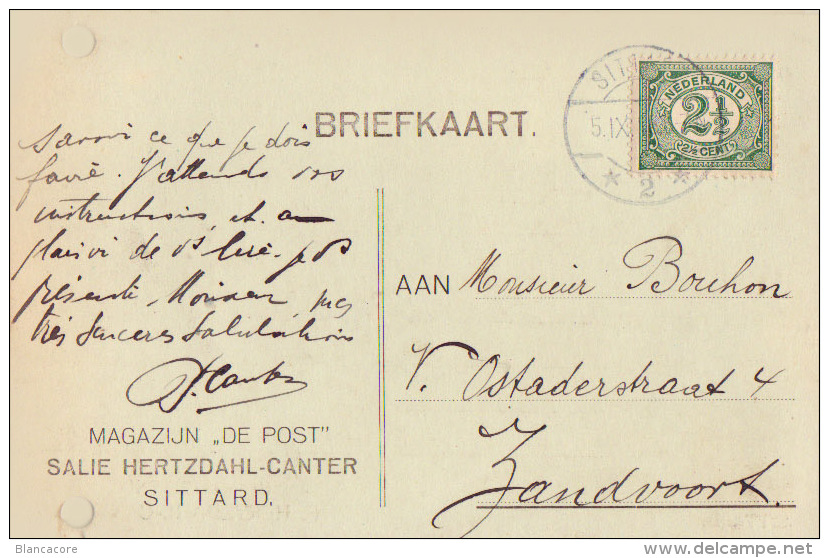 BRIEFKAART.
SIT
5.IX
2
NEDERLAND
2½
2½ CENT
savoir ce que je dois
faire. J'attends vos
instructions et au
plaisir de vs lire. je vs
présente, Monsieur, mes
très sincères salutations
S. Canter
MAGAZIJN „DE POST"
SALIE HERTZDAHL-CANTER
SITTARD.
AAN Monsieur Bouhon
V. Ostaderstraat 4
Zandvoort.
Blancacore
delcampe.net